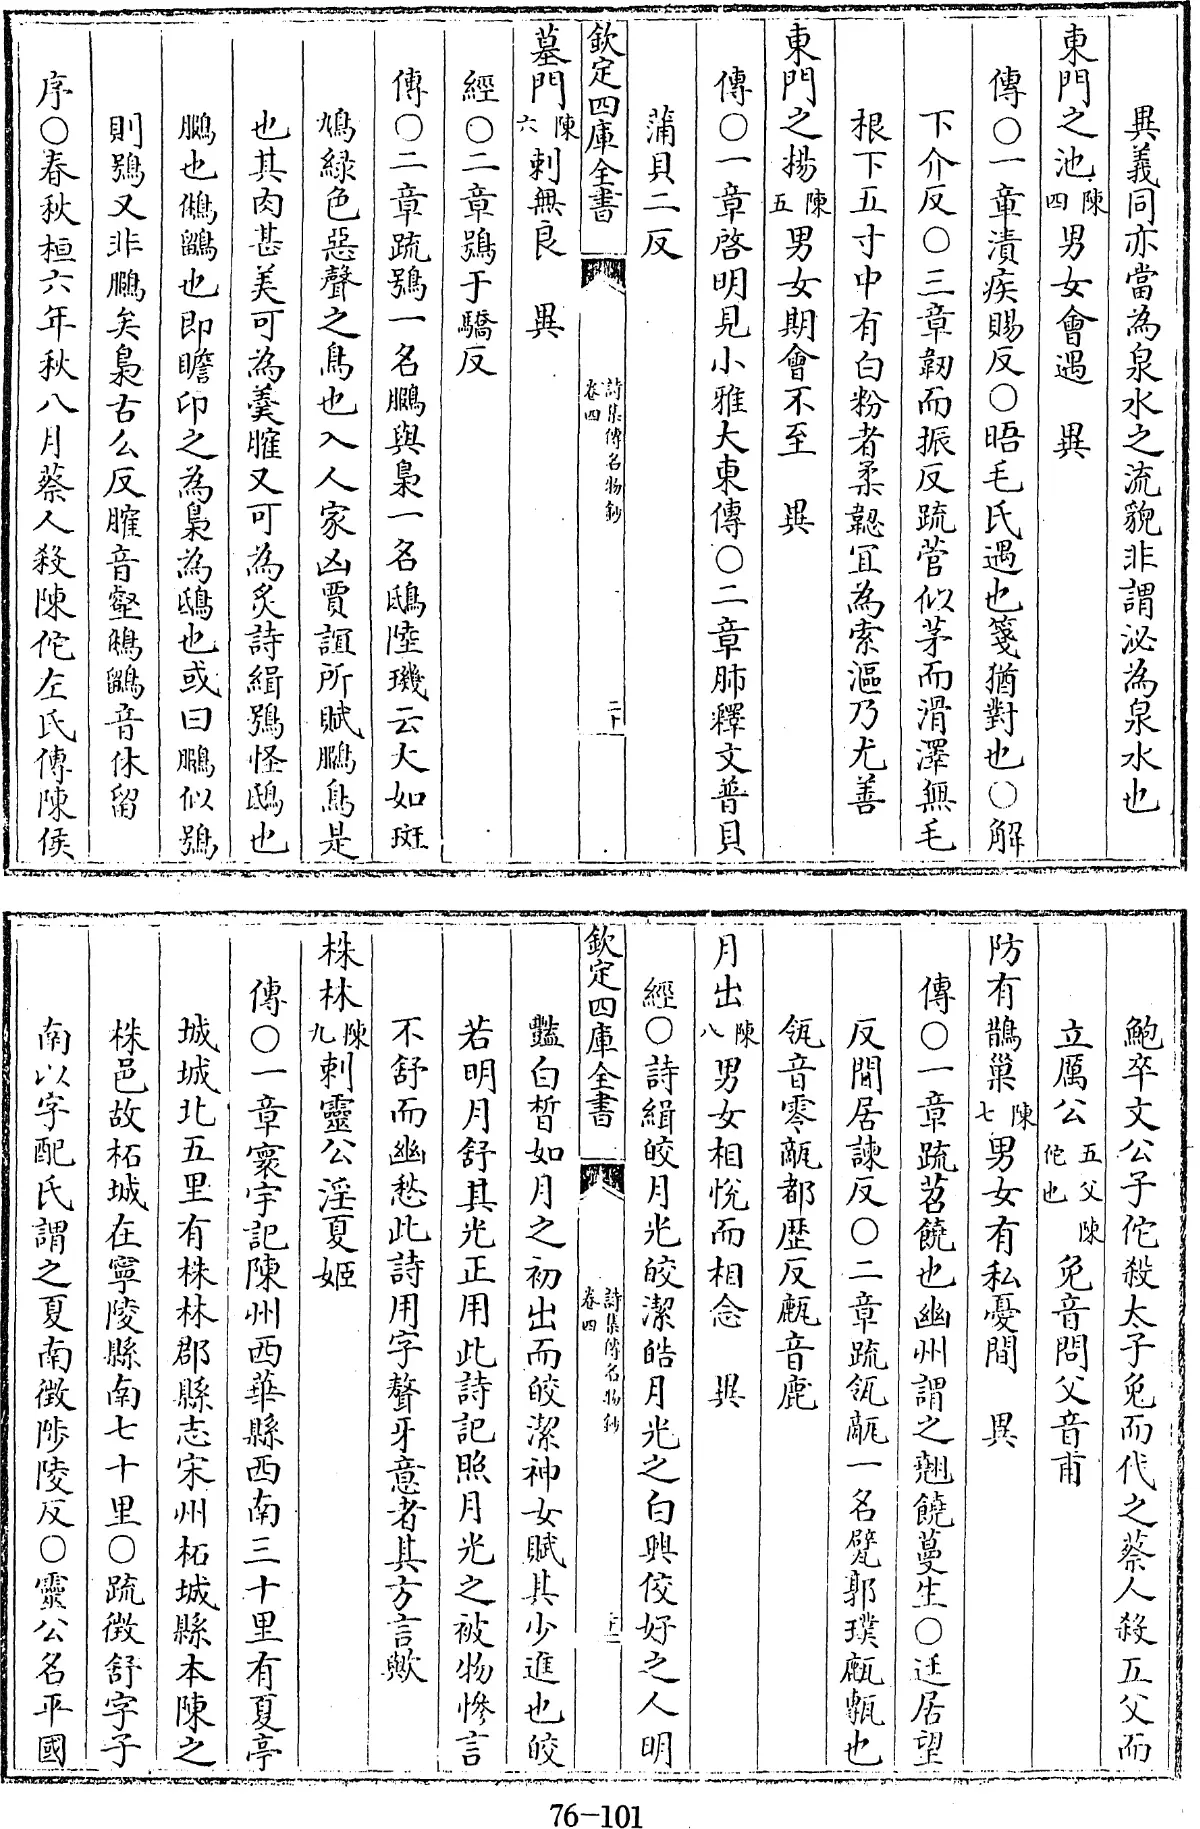 異義同亦當為泉水之流貌非謂泌為泉水也
東門之池陳四男女會遇 異
傳〇一章漬疾賜反〇晤毛氏遇也箋猶對也〇解
下介反〇三章韌而振反疏菅似茅而滑澤無毛
根下五寸中有白粉者柔韌宜為索漚乃尤善
東門之楊陳五男女期會不至 異
傳〇一章啓明見小雅大東傳〇二章肺釋文普貝
蒲貝二反
欽定四庫全書
詩集傳名物鈔
卷四
二十
墓門陳六刺無良 異
經〇二章鴞于驕反
傳〇二章疏鴞一名鵩與梟一名鴟陸璣云大如斑
鳩綠色惡聲之鳥也入人家凶賈誼所賦鵩鳥是
也其肉甚美可為羹臛又可為炙詩緝鴞怪鴟也
鵩也鵂鶹也即瞻卬之為梟為鴟也或曰鵩似鴞
則鴞又非鵩矣梟古么反臛音壑鵂鶹音休留
序〇春秋桓六年秋八月蔡人殺陳佗左氏傳陳侯
鮑卒文公子佗殺太子免而代之蔡人殺五父而
立厲公五父陳佗也免音問父音甫
防有鵲巢陳七男女有私憂間 異
傳〇一章疏苕饒也幽州謂之翹饒蔓生〇迋居望
反閒居諫反〇二章疏瓴甋一名甓郭璞㼾甎也
瓴音零甋都歷反㼾音鹿
月出陳八男女相悅而相念 異
經〇詩緝皎月光皎潔皓月光之白興佼好之人明
欽定四庫全書
詩集傳名物鈔
卷四
豔白晳如月之初出而皎潔神女賦其少進也皎
若明月舒其光正用此詩記照月光之被物慘言
不舒而幽愁此詩用字聱牙意者其方言歟
株林陳九刺靈公淫夏姬
傳〇一章寰宇記陳州西華縣西南三十里有夏亭
城城北五里有株林郡縣志宋州柘城縣本陳之
株邑故柘城在寧陵縣南七十里〇疏徵舒字子
南以字配氏謂之夏南徵陟陵反〇靈公名平國
76-101